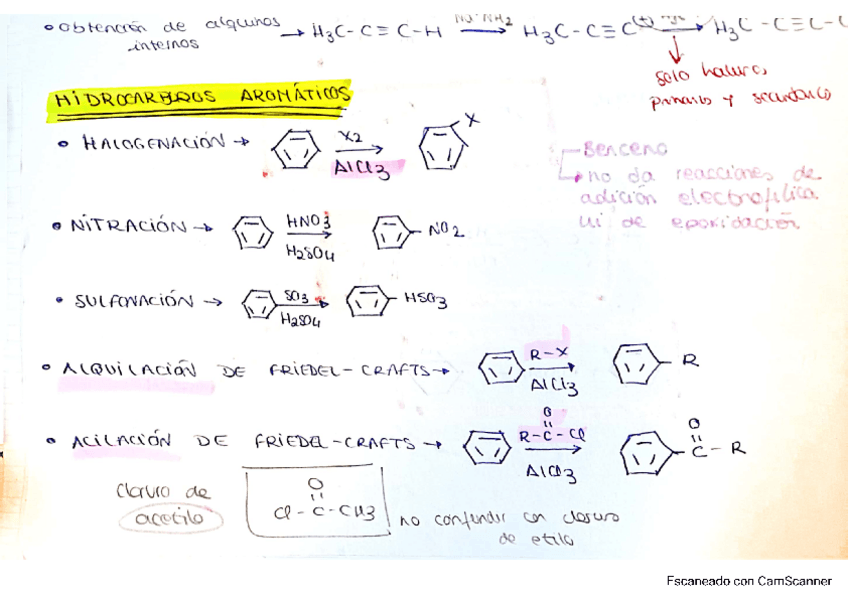 • Obtención de alquinos internos → H3C-C≡C-H → H3C-C≡C(-) → H3C-C≡C-
solo haluros
primarios y secundarios
HIDROCARBUROS AROMÁTICOS
• HALOGENACIÓN → X2 AlCl3 → X
- Benceno
→ no da reacciones de
adición electrofílica
ni de epoxidación
• NITRACIÓN → HNO3 H2SO4 → NO2
• SULFONACIÓN → SO3 H2SO4 → HSO3
• ALQUILACIÓN DE FRIEDEL-CRAFTS → R-X AlCl3 → R
• ACILACIÓN DE FRIEDEL-CRAFTS → R-C-Cl O AlCl3 → O C-R
cloruro de
acetilo
O
Cl-C-CH3
no confundir con cloruro
de etilo
Escaneado con CamScanner